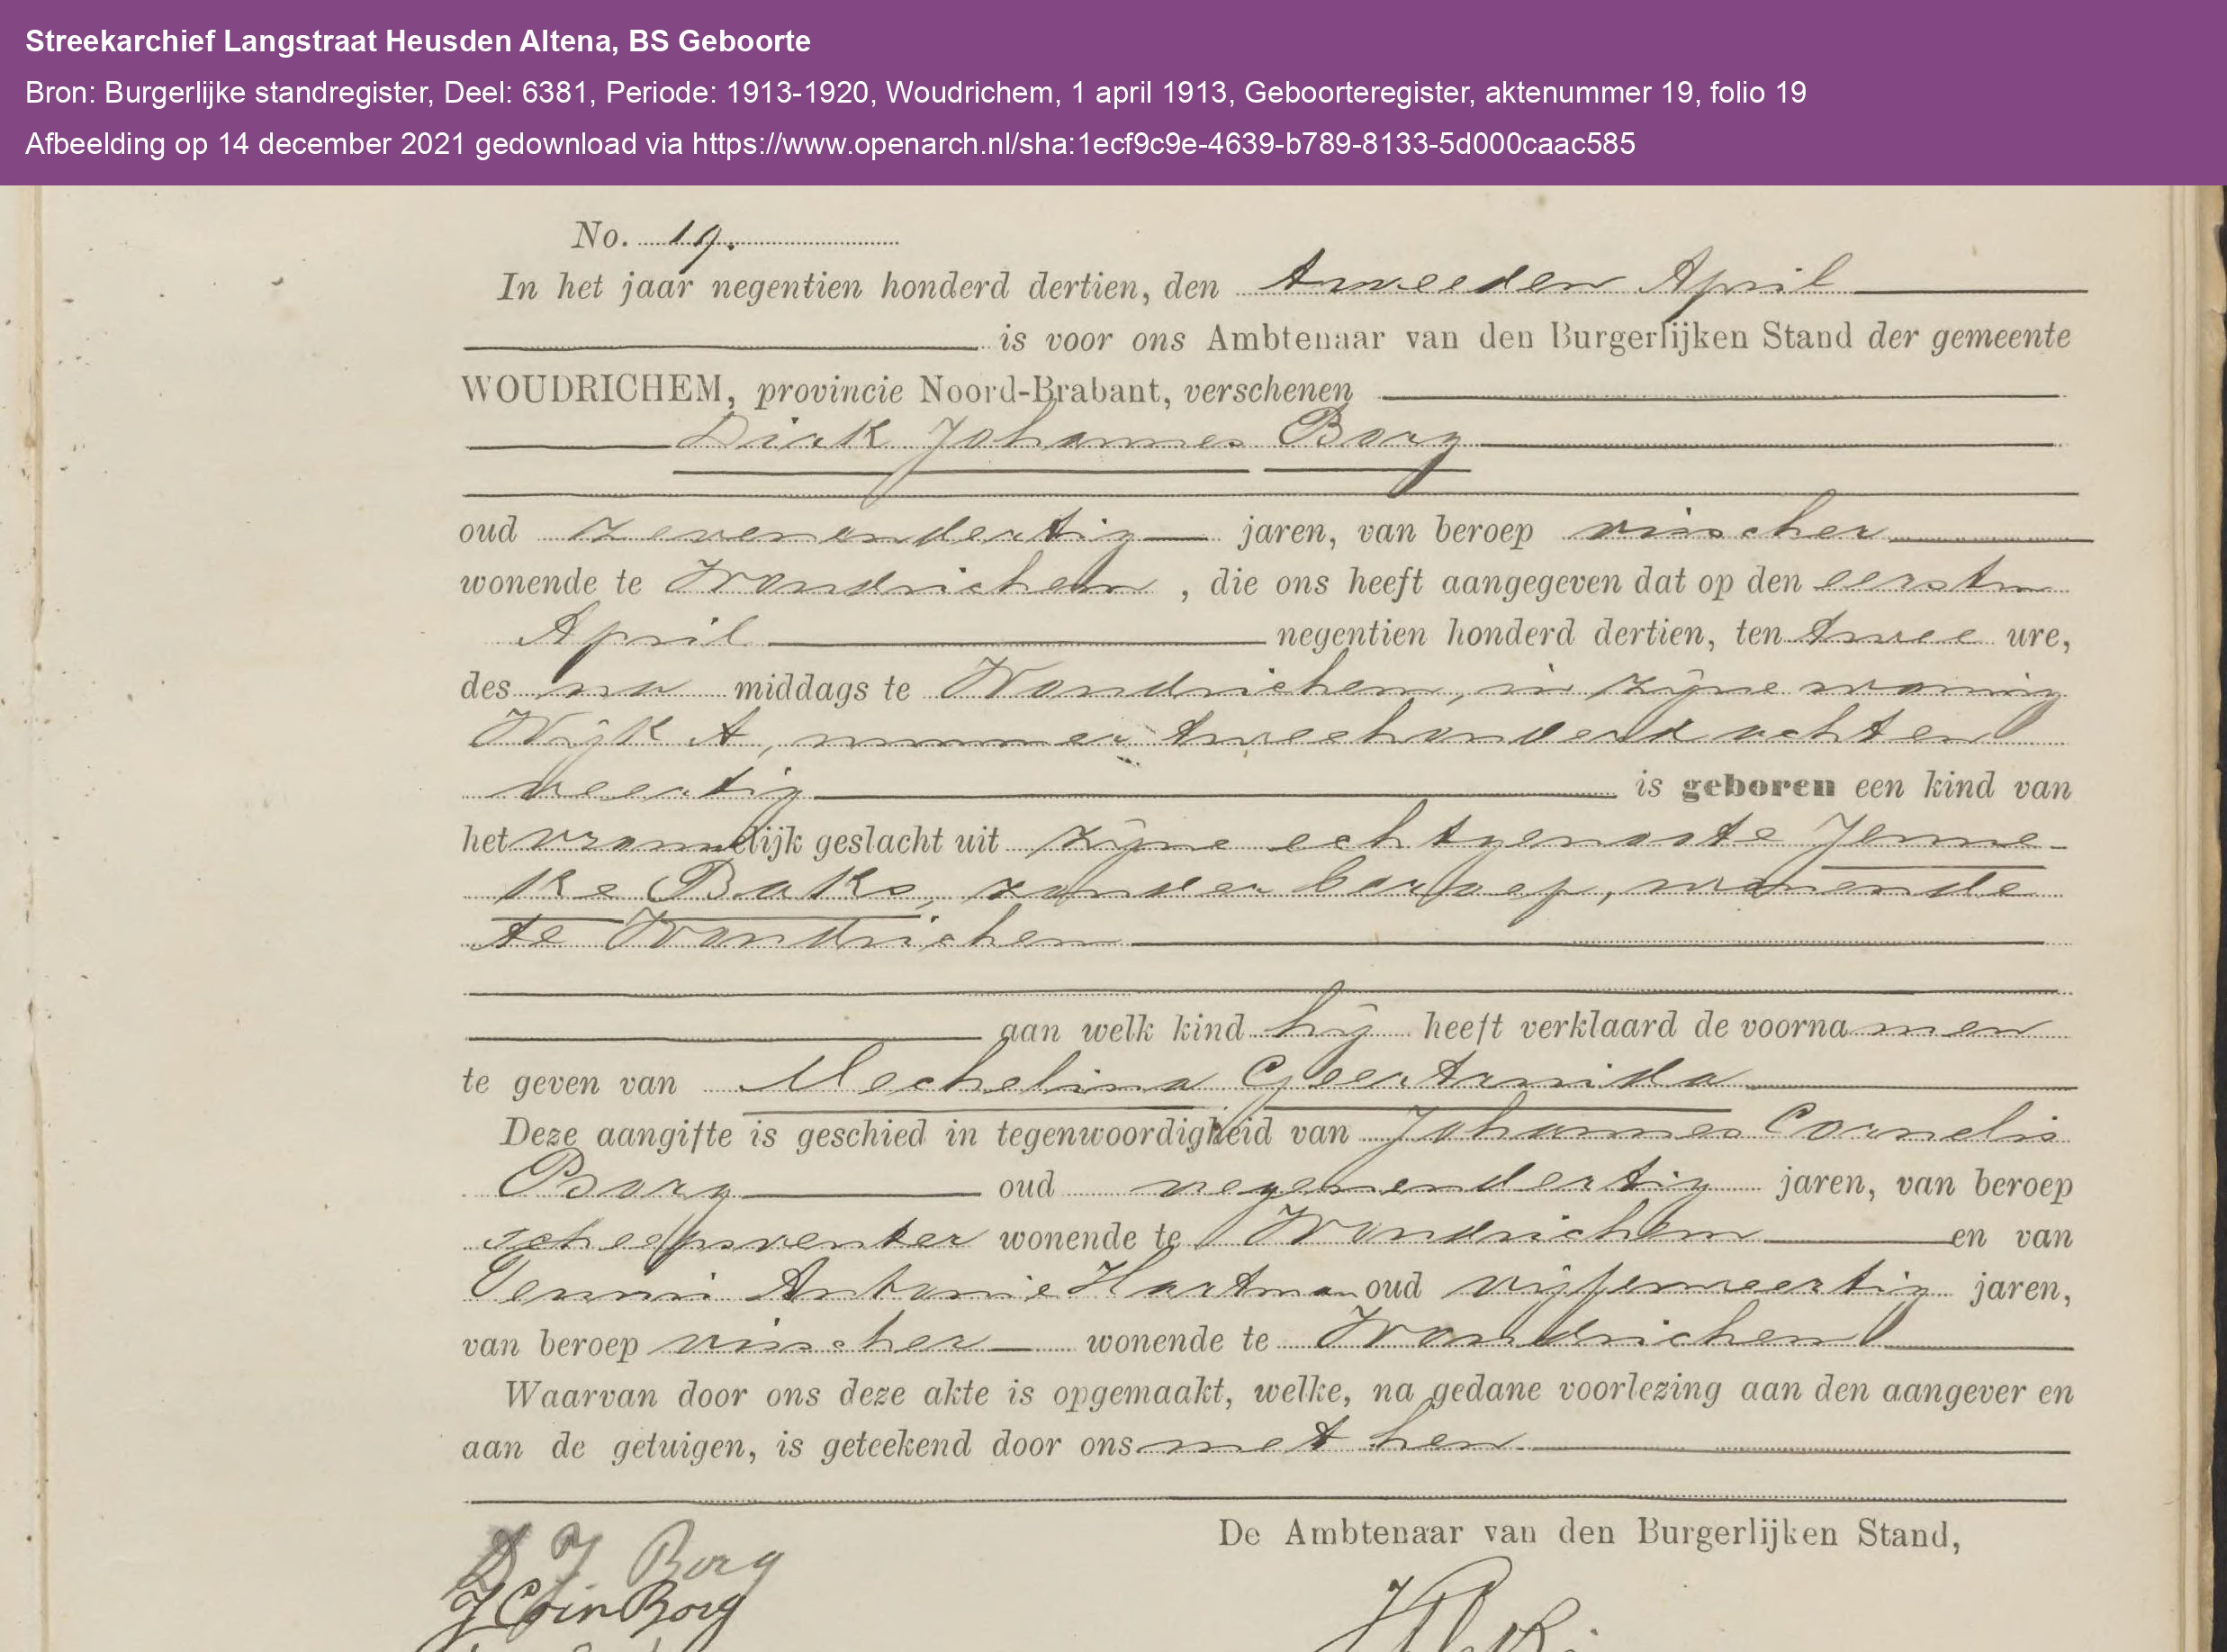 Streekarchief Langstraat Heusden Altena, BS Geboorte
Bron: Burgerlijke standregister, Deel: 6381, Periode: 1913-1920, Woudrichem, 1 april 1913, Geboorteregister, aktenummer 19, folio 19
Afbeelding op 14 december 2021 gedownload via https://www.openarch.nl/sha:1ecf9c9e-4639-b789-8133-5d000caac585
No. 19.
In het jaar negentien honderd dertien, den tweeden April
is voor ons Ambtenaar van den Burgerlijken Stand der gemeente
WOUDRICHEM, provincie Noord-Brabant, verschenen
Dirk Johannes Borg
oud zevenendertig jaren, van beroep visscher
wonende te Woudrichem, die ons heeft aangegeven dat op den eersten
April negentien honderd dertien, ten twee ure,
des na middags te Woudrichem, in zijne woning
Wijk A, nummer tweehonderd achten
veertig is geboren een kind van
het vrouwelijk geslacht uit zijne echtgenoote Jenne-
ke Baks, zonder beroep, wonende
te Woudrichem
aan welk kind hij heeft verklaard de voornamen
te geven van Mechelina Geertruida
Deze aangifte is geschied in tegenwoordigheid van Johannes Cornelis
Borg oud negenendertig jaren, van beroep
scheepsventer wonende te Woudrichem en van
Teunis Antonie Hartman oud vijfenveertig jaren,
van beroep visscher wonende te Woudrichem
Waarvan door ons deze akte is opgemaakt, welke, na gedane voorlezing aan den aangever en
aan de getuigen, is geteekend door ons met hen.
De Ambtenaar van den Burgerlijken Stand,
D J Borg
J Corn Borg